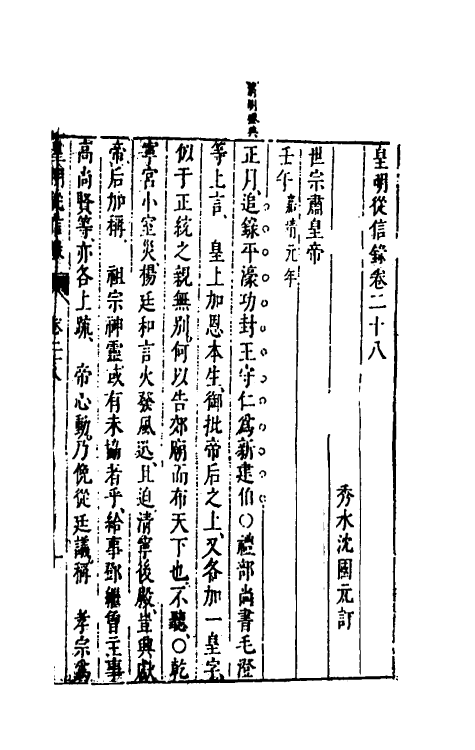 皇明從信錄卷二十八
秀水沈國元訂
世宗肅皇帝
壬午嘉靖元年
正月、追錄平濠功封王守仁爲新建伯○禮部尚書毛澄
等上言、皇上加恩本生、御批帝后之上、又各加一皇字、
似于正統之親無別、何以告郊廟而布天下也、不聽、○乾
寧宮小室災楊廷和言火發風迅、且迫清寧後殿、豈興獻
帝后加稱、祖宗神靈或有未協者乎、給事鄧繼曾主事
高尚賢等、亦各上疏、帝心動、乃俛從廷議、稱孝宗爲
皇明從信錄 卷二十八 一